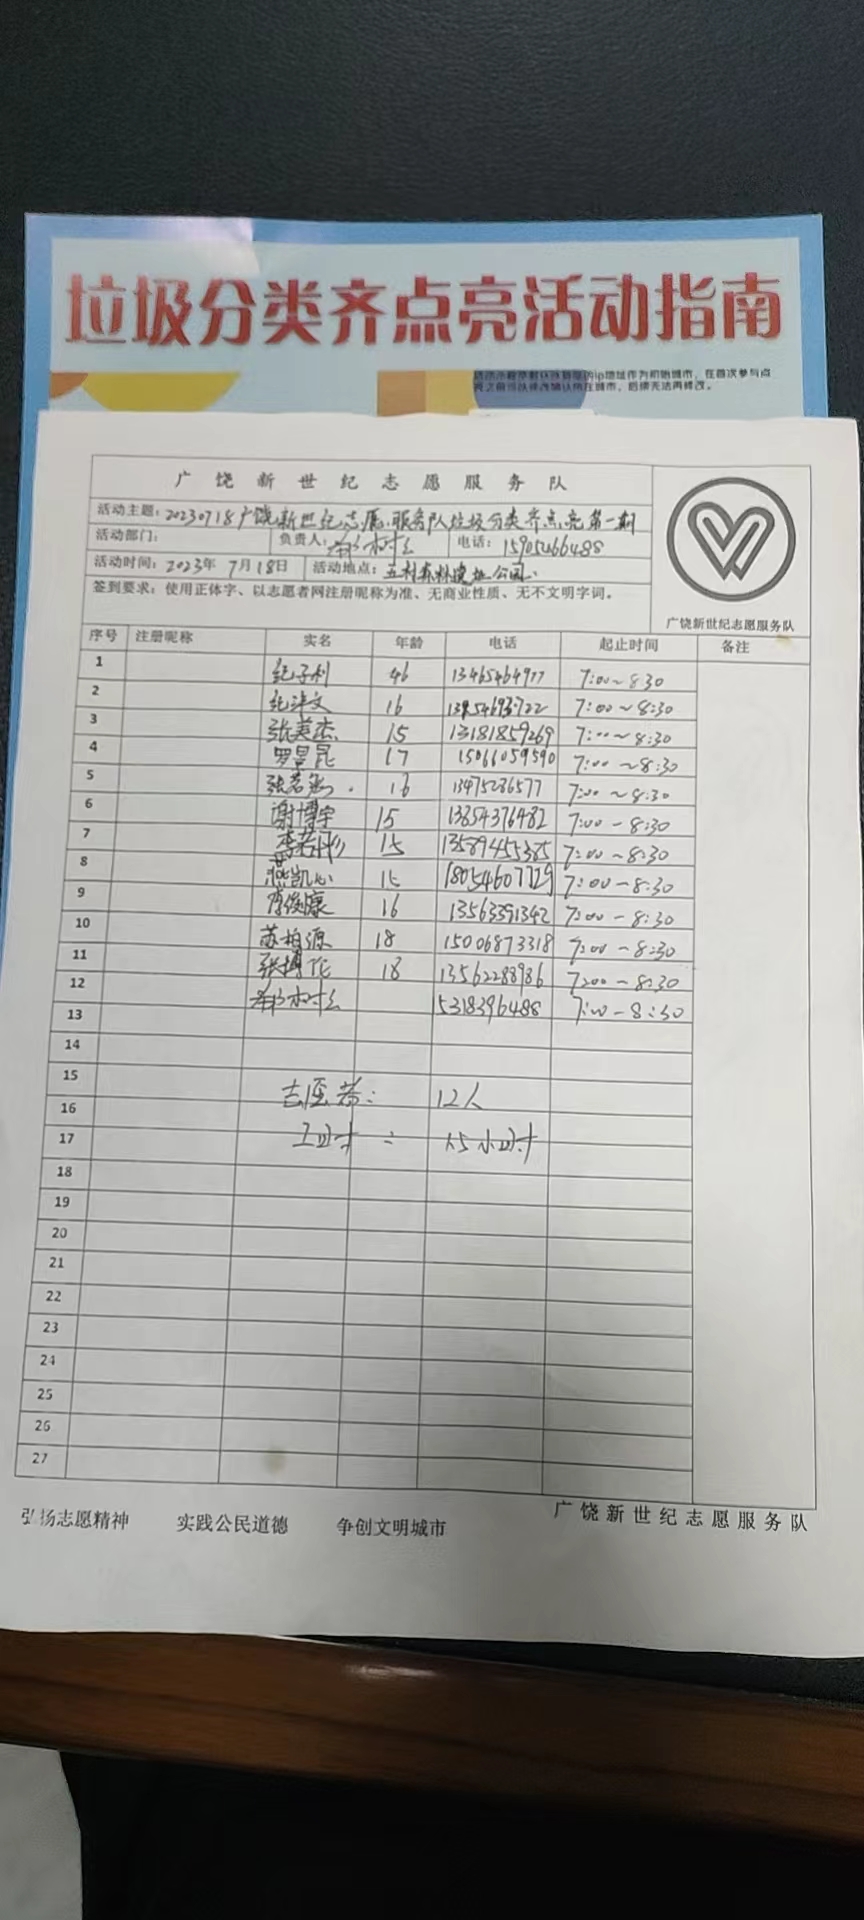 垃圾分类齐点亮活动指南
广饶新世纪志愿服务队
活动主题：20230718广饶新世纪志愿服务队垃圾分类齐点亮第一期
活动部门： 负责人： 电话：15905466488
活动时间：2023年7月18日 活动地点：五村森林 公园
签到要求：使用正体字、以志愿者网注册昵称为准、无商业性质、无不文明字词。
广饶新世纪志愿服务队
序号 注册昵称 实名 年龄 电话 起止时间 备注
1 纪子利 46 13465464977 7:00~8:30
2 纪 文 16 7:00~8:30
3 张美杰 15 13181859269 7:00~8:30
4 罗昱昆 17 15066059590 7:00~8:30
5 张若 16 13475286577 7:00~8:30
6 谢博宇 15 13854376482 7:00-8:30
7 李若彤 15 13589455385 7:00-8:30
8 燕凯心 15 18054607729 7:00-8:30
9 李俊康 16 13563391342 7:00-8:30
10 苏柏源 18 15006873318 7:00-8:30
11 张博 18 13562288986 7:00-8:30
12 15318396488 7:00-8:30
13
14
15
志愿者： 12人
16
工时： 小时
17
18
19
20
21
22
23
24
25
26
27
弘扬志愿精神 实践公民道德 争创文明城市 广饶新世纪志愿服务队